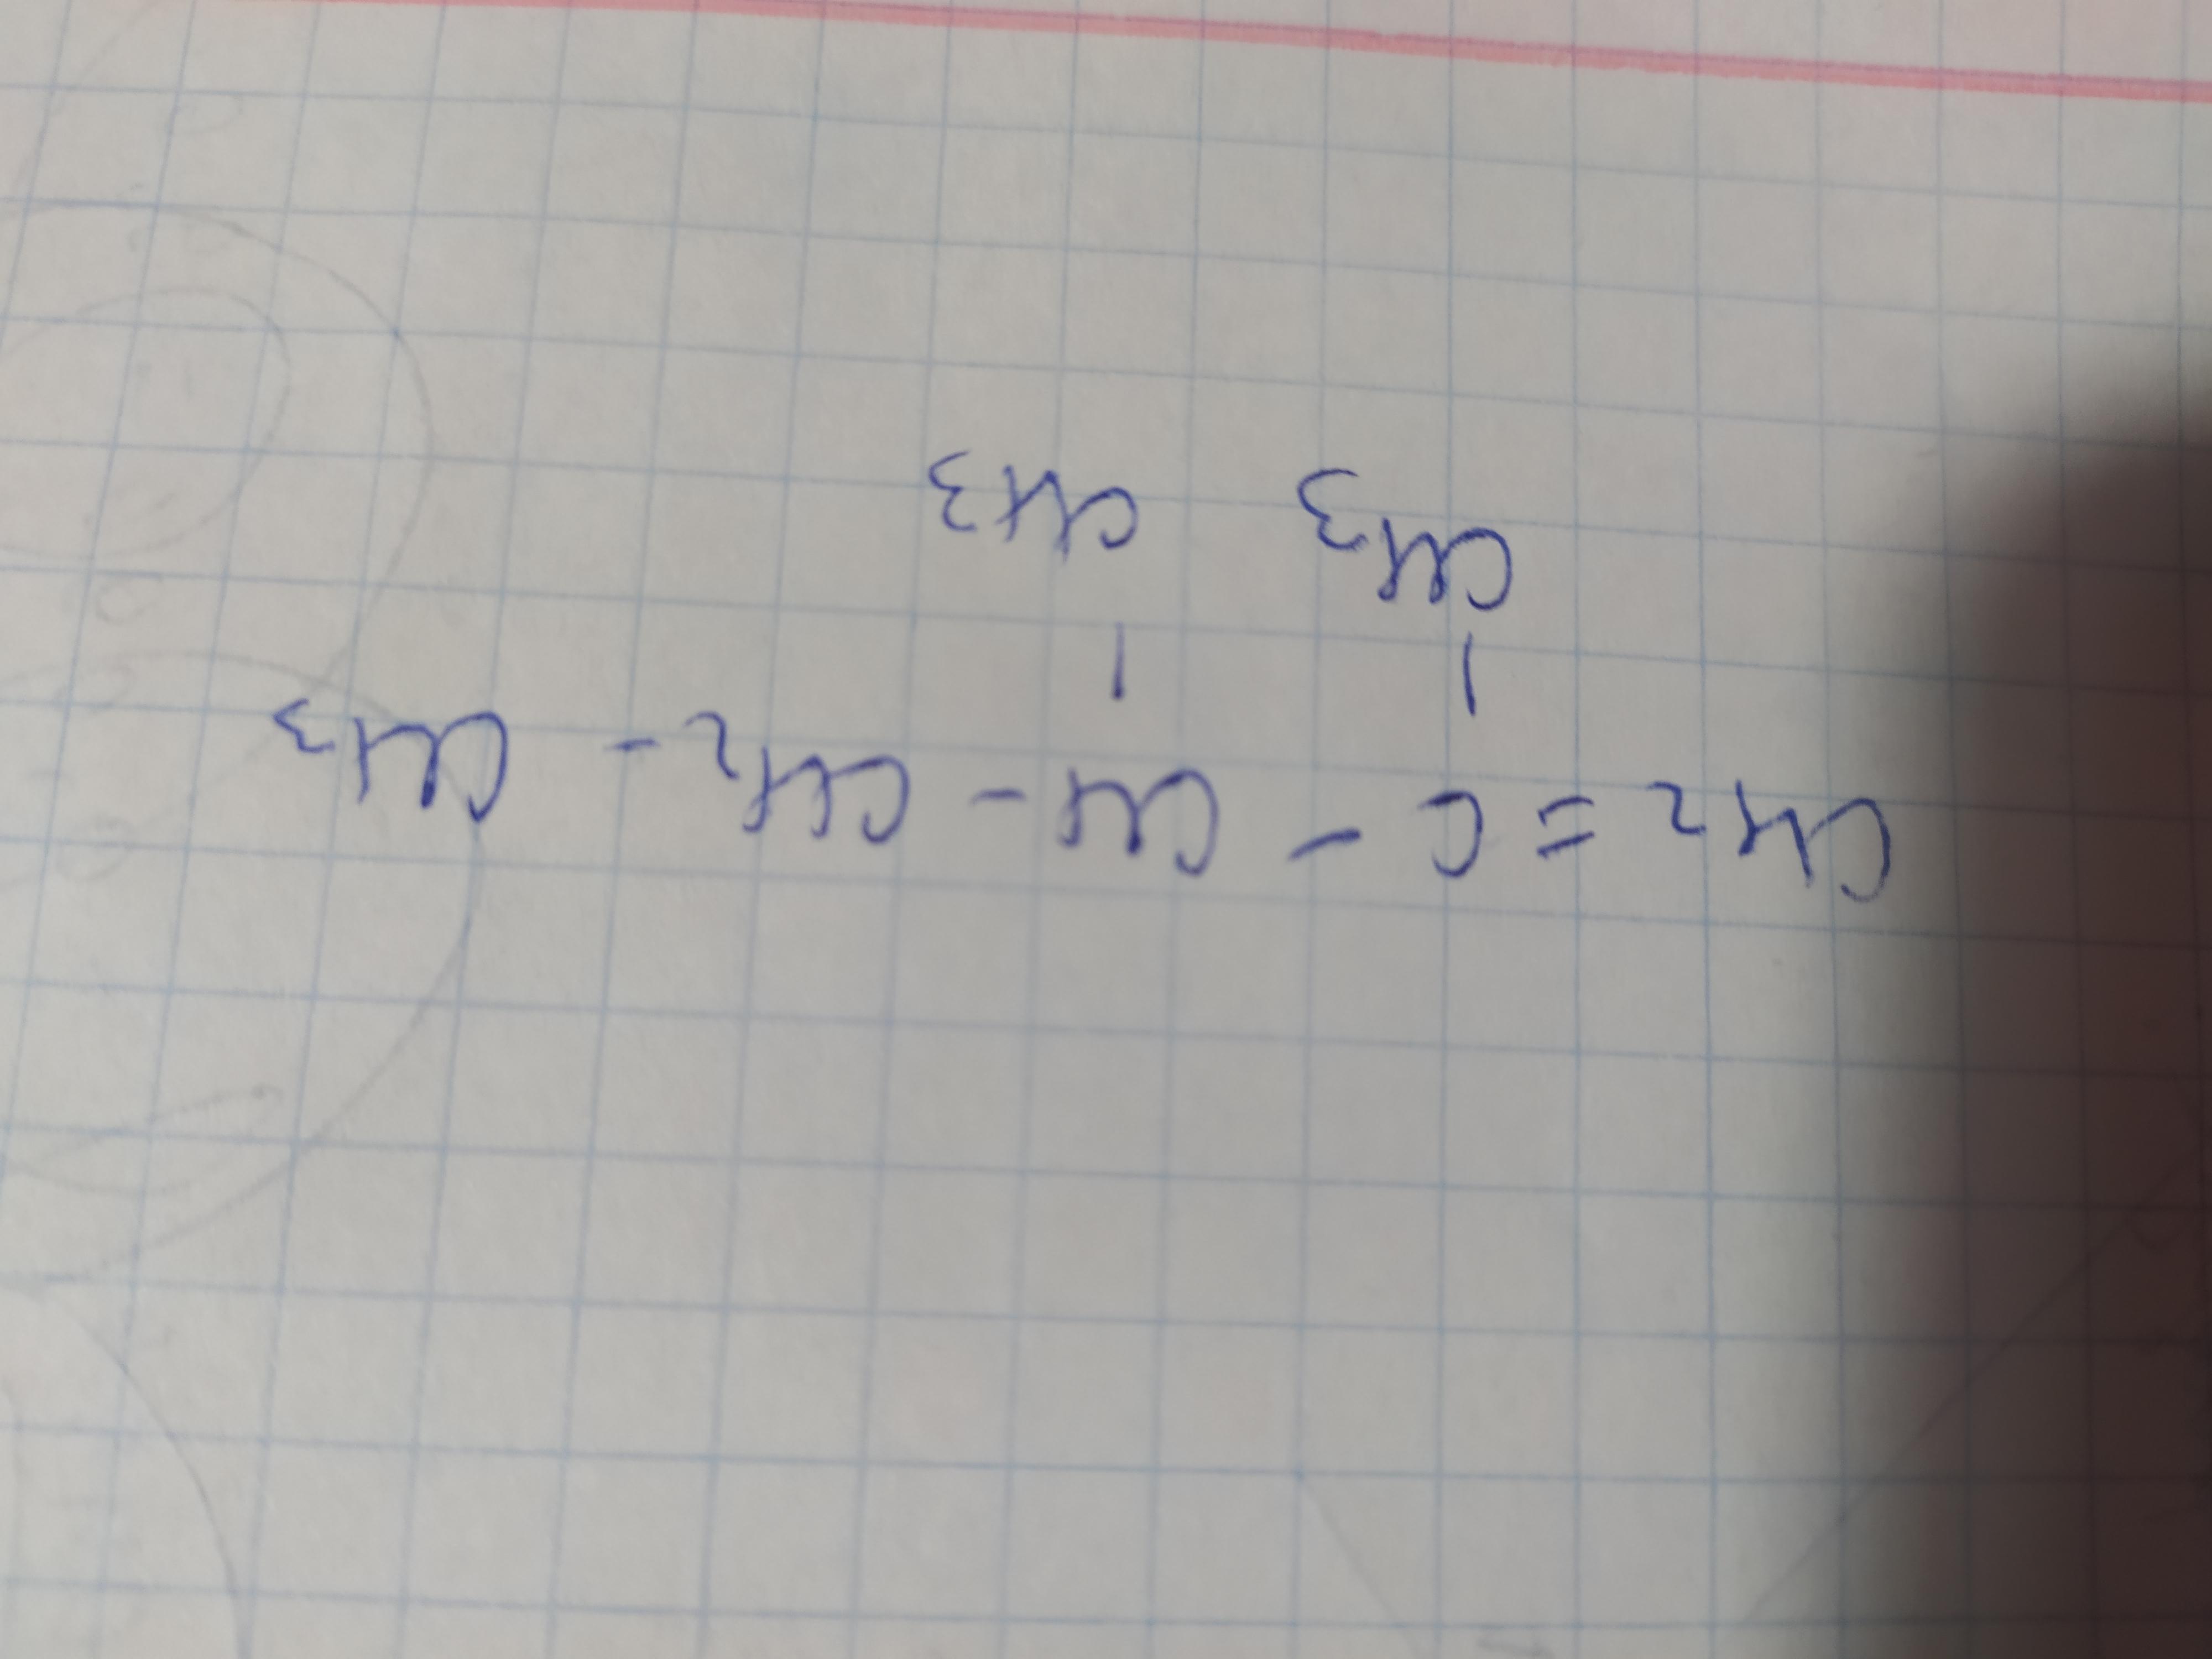 CH2 = C - CH - CH2 - CH3
| |
CH3 CH3